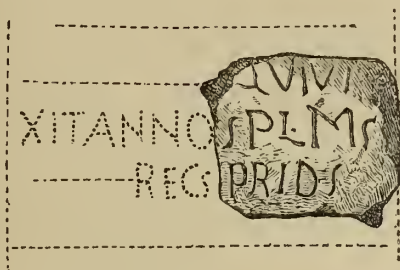 QVIVI
XITANNOSPL·MS
REGSPRIDS